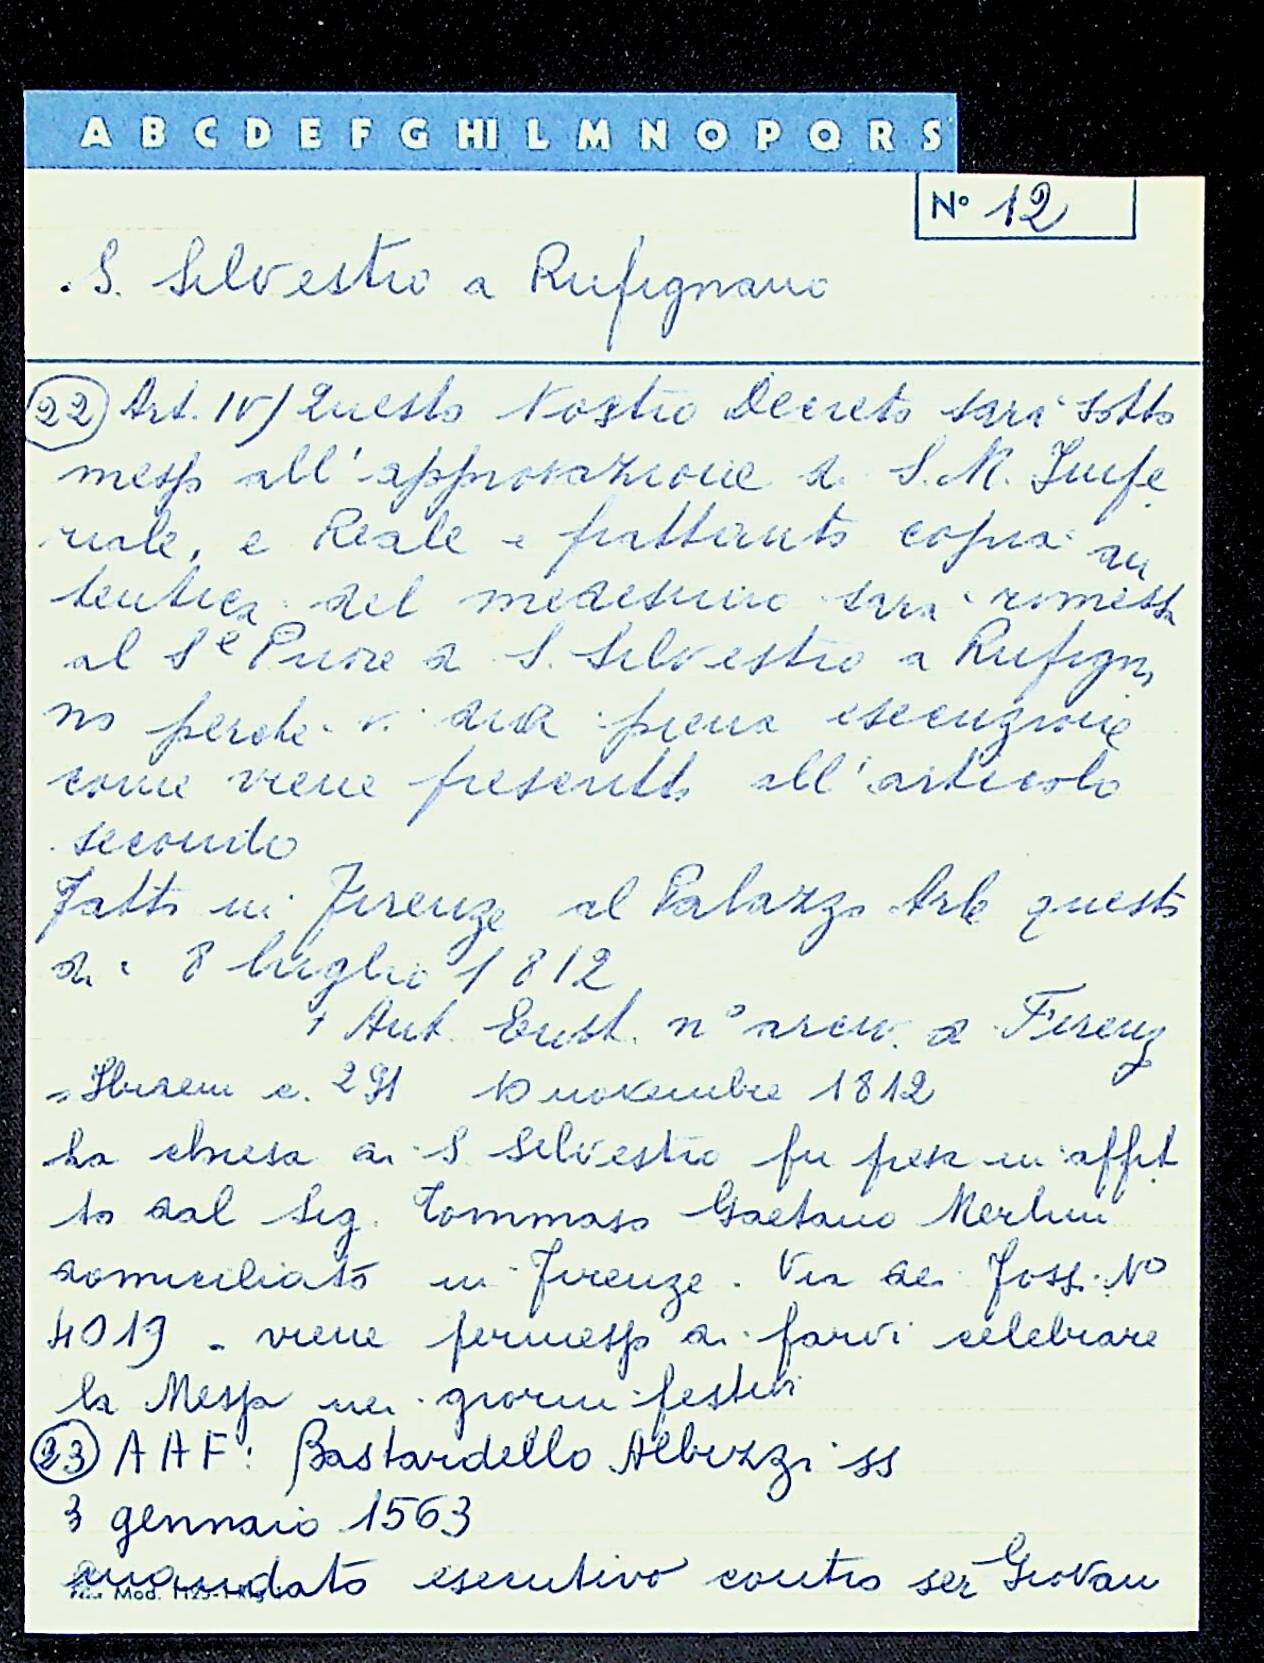 A B C D E F G HI L M N O P Q R S
N° 12
S. Silvestro a Rufignano
22 Art. IV) Questo Nostro Decreto sarà sotto
messo all'approvazione di S. M. Impe
riale, e Reale e frattanto copia au
tentica del medesimo sarà rimessa
al Sre Priore di S. Silvestro a Rufigna
no perchè vi dia piena esecuzione
come viene prescritto all'articolo
secondo
Fatto in Firenze al Palazzo Arle questo
di 8 luglio 1812
+ Ant. Eust. n° arciv. di Firenz
Ibidem c. 291 10 novembre 1812
La chiesa di S Silvestro fu presa in affit
to dal Sig. Tommaso Gaetano Merlini
domiciliato in Firenze. Via dei Fossi N°
4019 - viene permesso di farvi celebrare
la Messa nei giorni festivi
23 A A F: Bastardello Albizzi ss
3 gennaio 1563
mandato esecutivo contro ser Giovan
Mod.